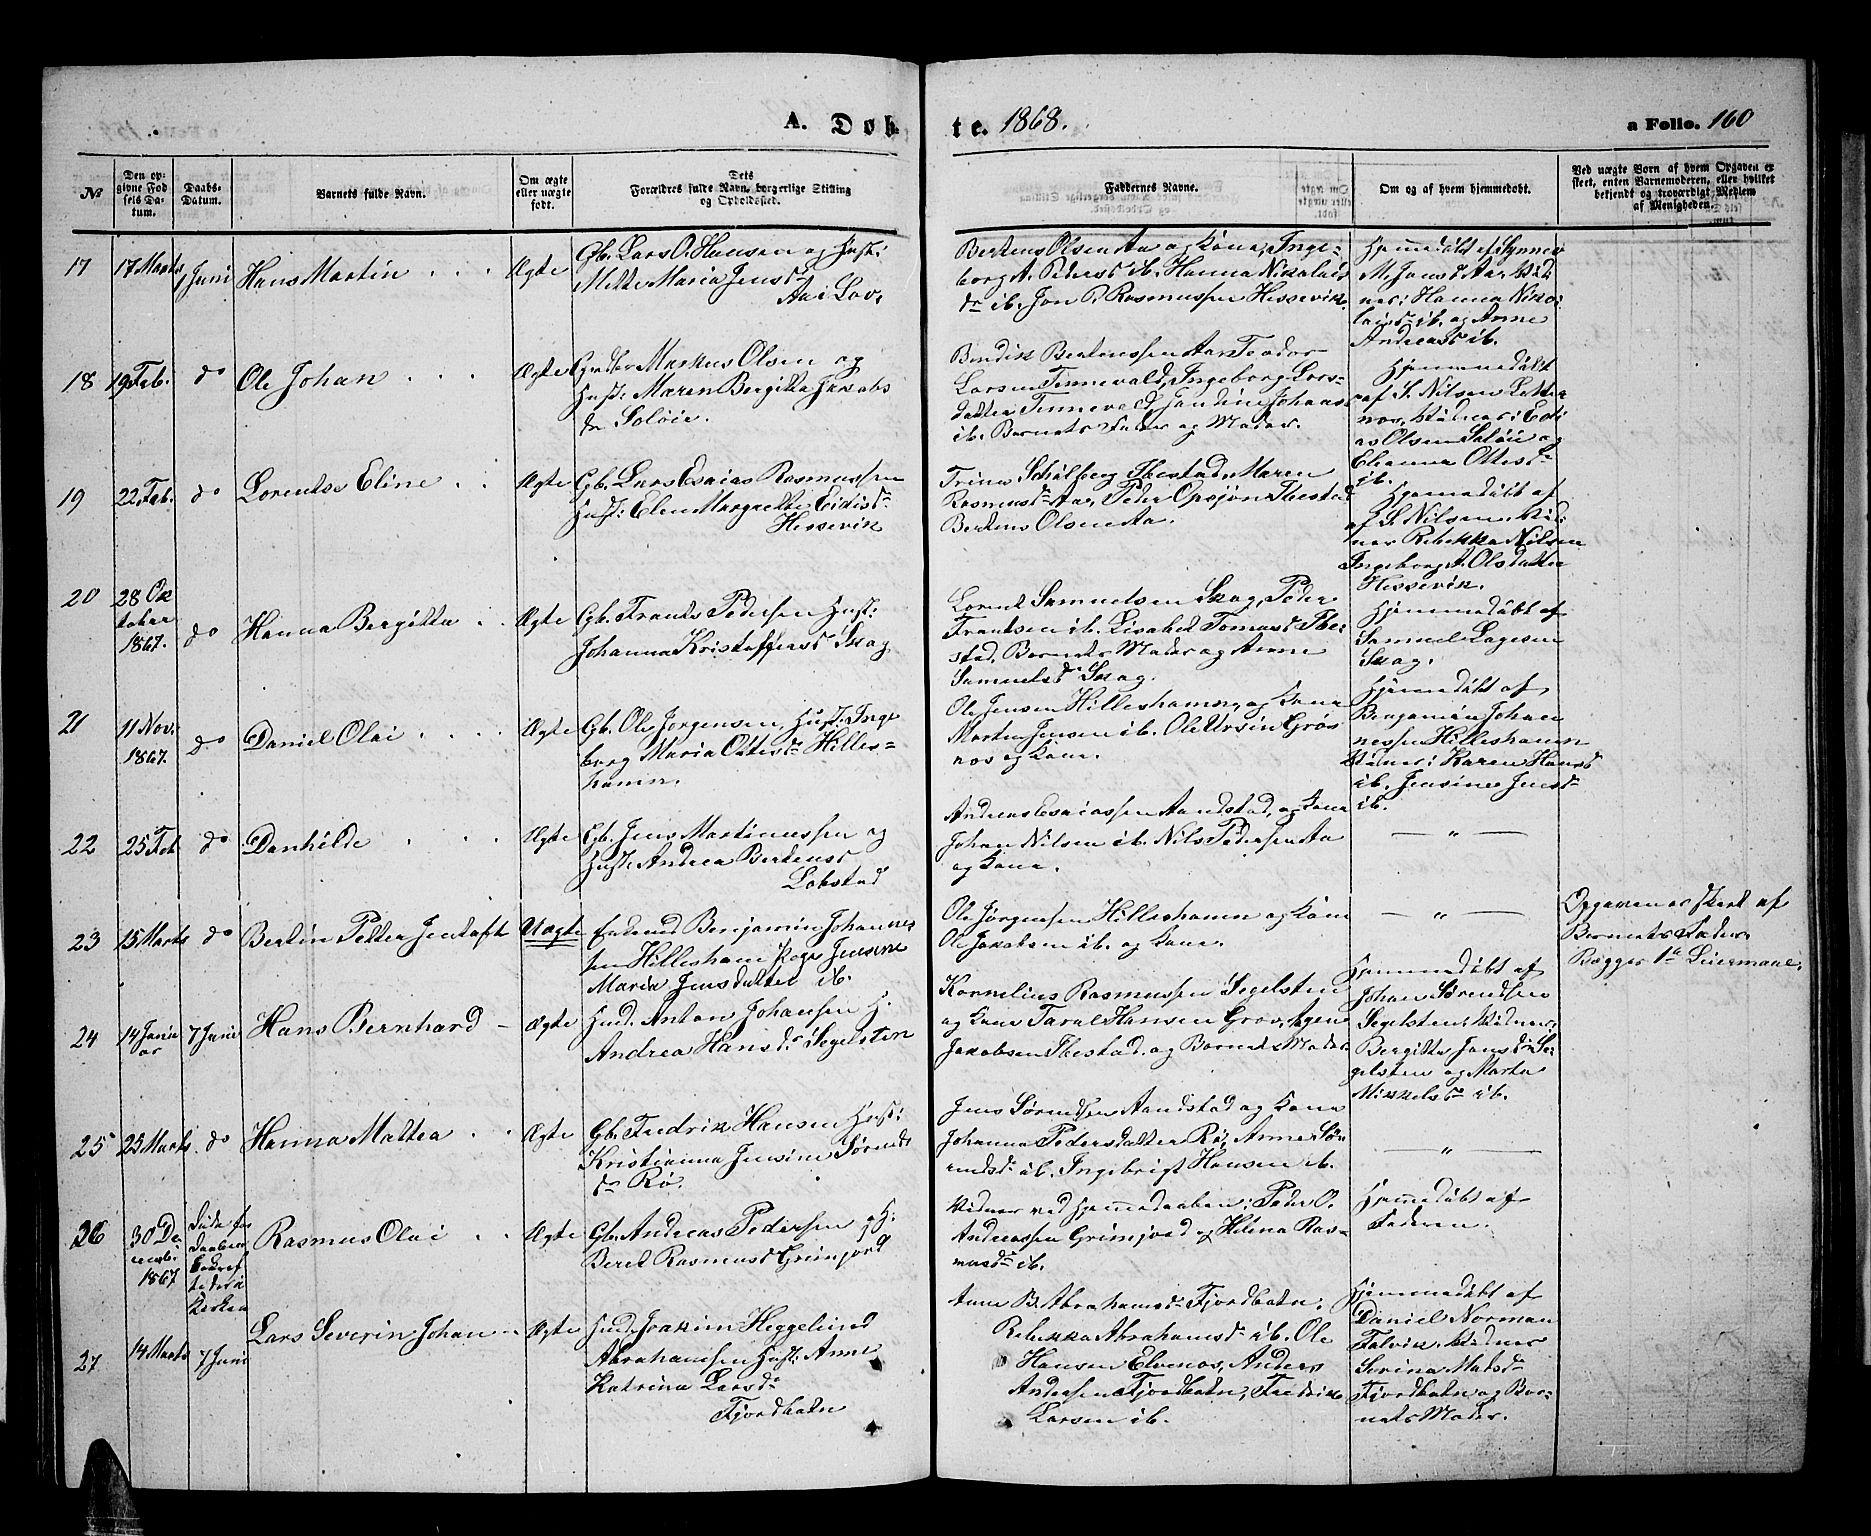 A. Døb
te. 1868.
a Folio. 160
№
Den op-
givne Fød
sels Da-
tum.
Daabs-
Datum.
Barnets fulde Navn.
Om ægte
eller uægte
født.
Dets
Forældres fulde Navn, borgerlige Stilling
og Opholdssted.
Faddernes Navne.
Om og af hvem hjemmedøbt.
Ved uægte Børn af hvem Opgaven er
skeet, enten Barnemoderen, eller hvilket
bekjendt og troværdigt Medlem
af Menigheden.
17
17 Marts
1 Juni
Hans Martin
Ægte
Gb. Lars O. Hansen og Hust:
Mette Maria Jensd
Aa i Lav.
Bertens Olsen Aa og Kone, Inge-
borg A. Pedersd ib. Hanna Nikolais
dr ib. Jon P. Rasmussen Hessevik.
Hjemmedøbt af Synnev
M. Jansd Aa, Vid
ner: Hanna Niko
laisd ib. og Anne
Andreasd ib.
18
19 Feb.
do
Ole Johan
Ægte
Markus Olsen og
Hust: Maren Bergitta Jakobs
dr Soløie.
Bendik Bertenssen Aa, Teodor
Larsen Tennevold, Ingeborg Lars-
datter Tennevold, Johans
ib. Barnets Fader og Moder.
Hjemmedøbt
af S. Nilsen
Vidner: Edi
as Olsen Soløie og
Elianna Ottesd
ib.
19
22 Feb.
do
Lorentse Eline
Ægte
Gb. Lars Esaias Rasmussen
Hust: Elen Margrethe Eidisdr
Hessevik
Trine Schølberg Ibestad, Maren
Rasmusdr Aa, Peder Opsjøn Ibestad
Bertens Olsen Aa.
Hjemmedøbt af
af S. Nilsen, Vid
ner Rebekka Nilsen
Ingeborg A. Olsdatter
Hessevik.
20
28 Ok
tober
1867.
do
Hanna Bergitta
Ægte
Gb. Frants Pedersen Hust:
Johanna Kristoffersd Skog
Lornt Samuelsen Skog, Peder
Frantsen ib. Lisabet Tomasd Ibe-
stad, Barnets Moder og Anne
Samuelsd Skog.
Hjemmedøbt af
Samuel Lagesen
Skog.
21
11 Nov.
1867.
do
Daniel Olai
Ægte
Gb. Ole Jørgensen, Hust: Inge
borg Maria Ottesdr Hilles-
hamn.
Ole Jensen Hilleshamn, og Kone
Morten Jensen ib. Ole Ursin Grøs
nos og Kone.
Hjemmedøbt af
Benjamin Johan
nessen Hilleshamn
Vidner: Karen Hansd
ib. Jensine Jensd
ib.
22
25 Feb
do
Danhilde
Ægte
Gb. Jens Martinussen og
Hust: Andrea Bertensd
Løbstad
Andreas Esaiassen Aandstad, og Kone
Johan Nilsen ib. Nils Pedersen Aa
og Kone.
— " —
23
15 Marts
do
Bertin Petter Jentoft
Uægte
Enkemd Benjamin Johannes
sen Hilleshamn Pige Jensine
Maria Jensdatter ib.
Ole Jørgensen Hilleshamn og Kone
Ole Jakobsen ib. og Kone.
— " —
Opgaven er skeet af
Barnets Fader.
Begges 1te Leiermaal.
24
14 Janu
ar
7 Juni
Hans Bernhard
Ægte
Hmd. Anton Johansen H.
Andrea Hansdr Segelsten
Kornelius Rasmussen Segelsten
og Kone Taral Hansen Grov, Agen
Jakobsen Ibestad, og Barnets Moder.
Hjemmedøbt af
Johan Sørensen
Segelsten. Vidner:
Bergitte Jansdr Se-
gelsten og Marta
Mikkelsdr ib.
25
25 Marts
do
Hanna Mattea
Ægte
Gb. Fredrik Hansen Hust:
Kristianna Jensine Sørends
dr Rø.
Jens Sørensen Aandstad og Kone
Johanna Pedersdatter Rø, Anne Sør
endsdr ib. Ingebrigt Hansen ib.
— " —
26
30 De
cemb:
1867
Døde før
Daaben
bekræf
tedes i
Kirken
Rasmus Olai
Ægte
Gb. Andreas Pedersen og H:
Beret Rasmusd Grimjord
Vidner ved Hjemmedaaben: Peder O.
Andreassen Grimjord og Helena Ras-
musdr ib.
Hjemmedøbt af
Faderen.
27
14 Marts
7 Juni
Lars Severin Johan
Ægte
Hmd. Joakim Heggelund
Abrahamsen Hust: Anne
Katrina Larsdr
Fjordbotn
Anne B. Abrahamsdr Fjordbotn,
Rebekka Abrahamsdr ib. Ole
Hansen Elvenos, Anders
Andersen Fjordbotn, Fredrik
Larsen ib.
Hjemmedøbt af
Daniel Norman
Følvik. Vidner
Serina Matsdr
Fjordbotn og Bar-
nets Moder.